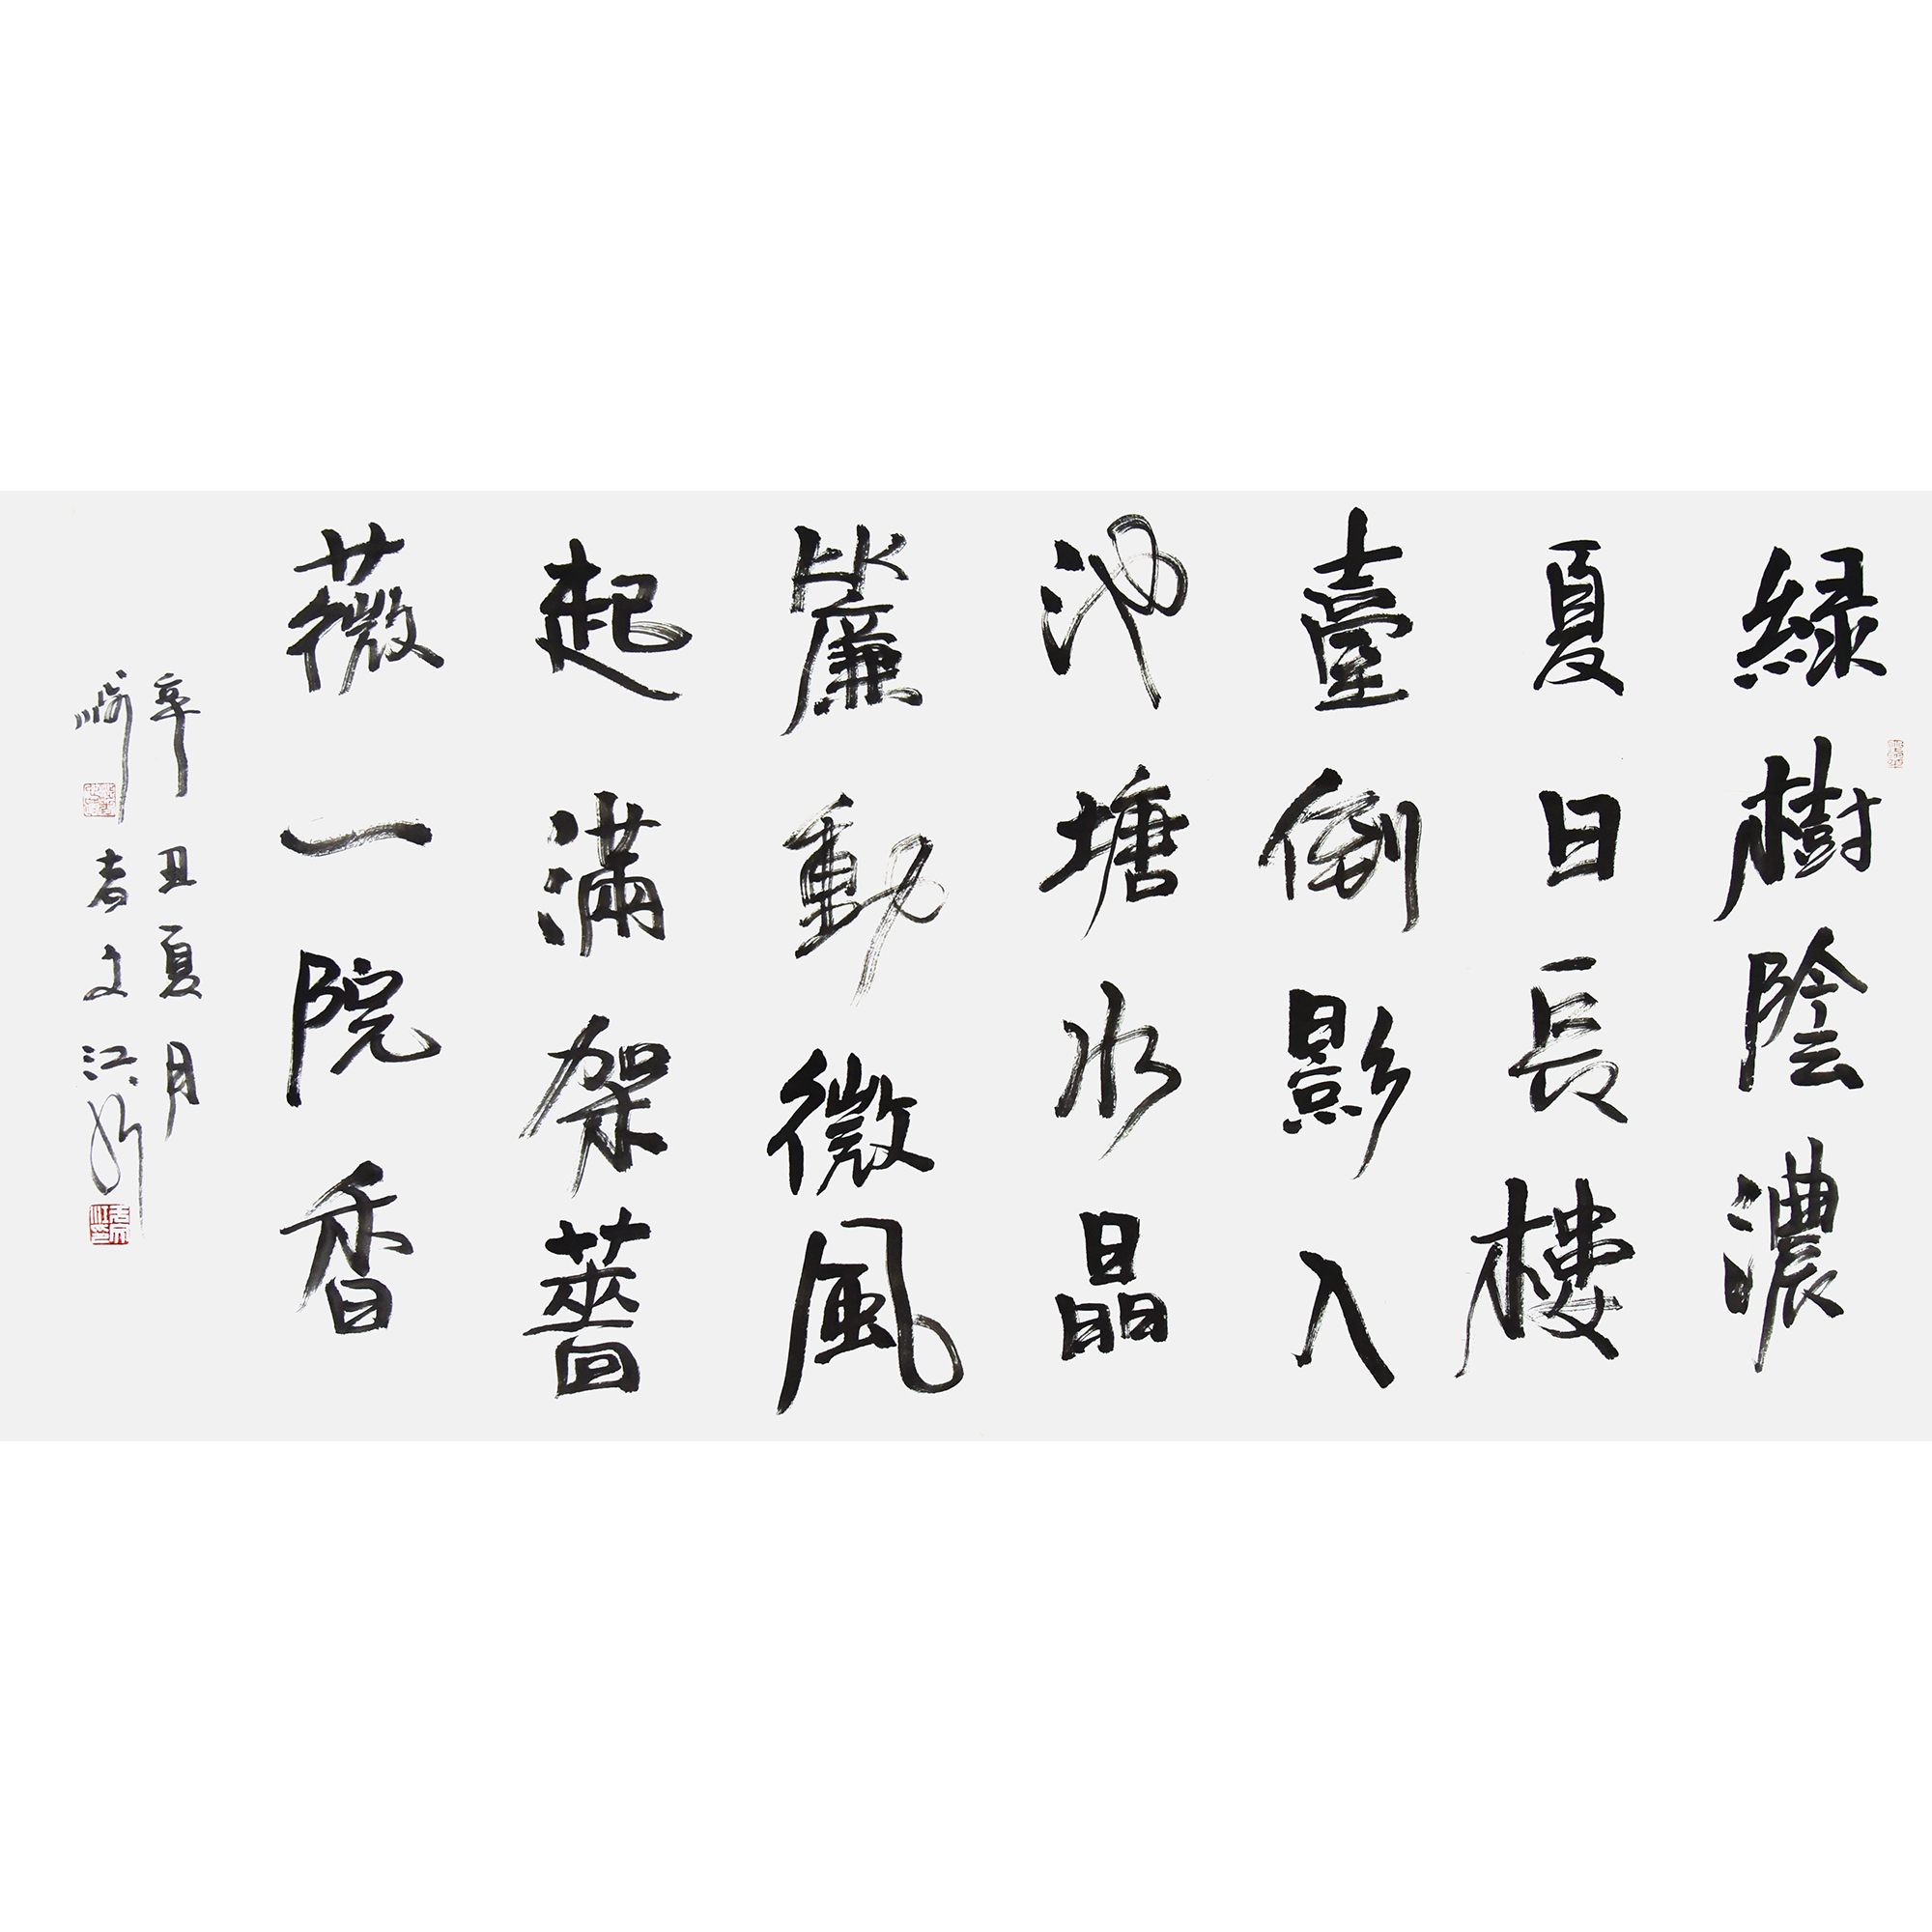 緑樹陰濃
夏日長樓
臺倒影入
池塘水晶
簾動微風
起滿架薔
薇一院香
辛丑夏月
文江